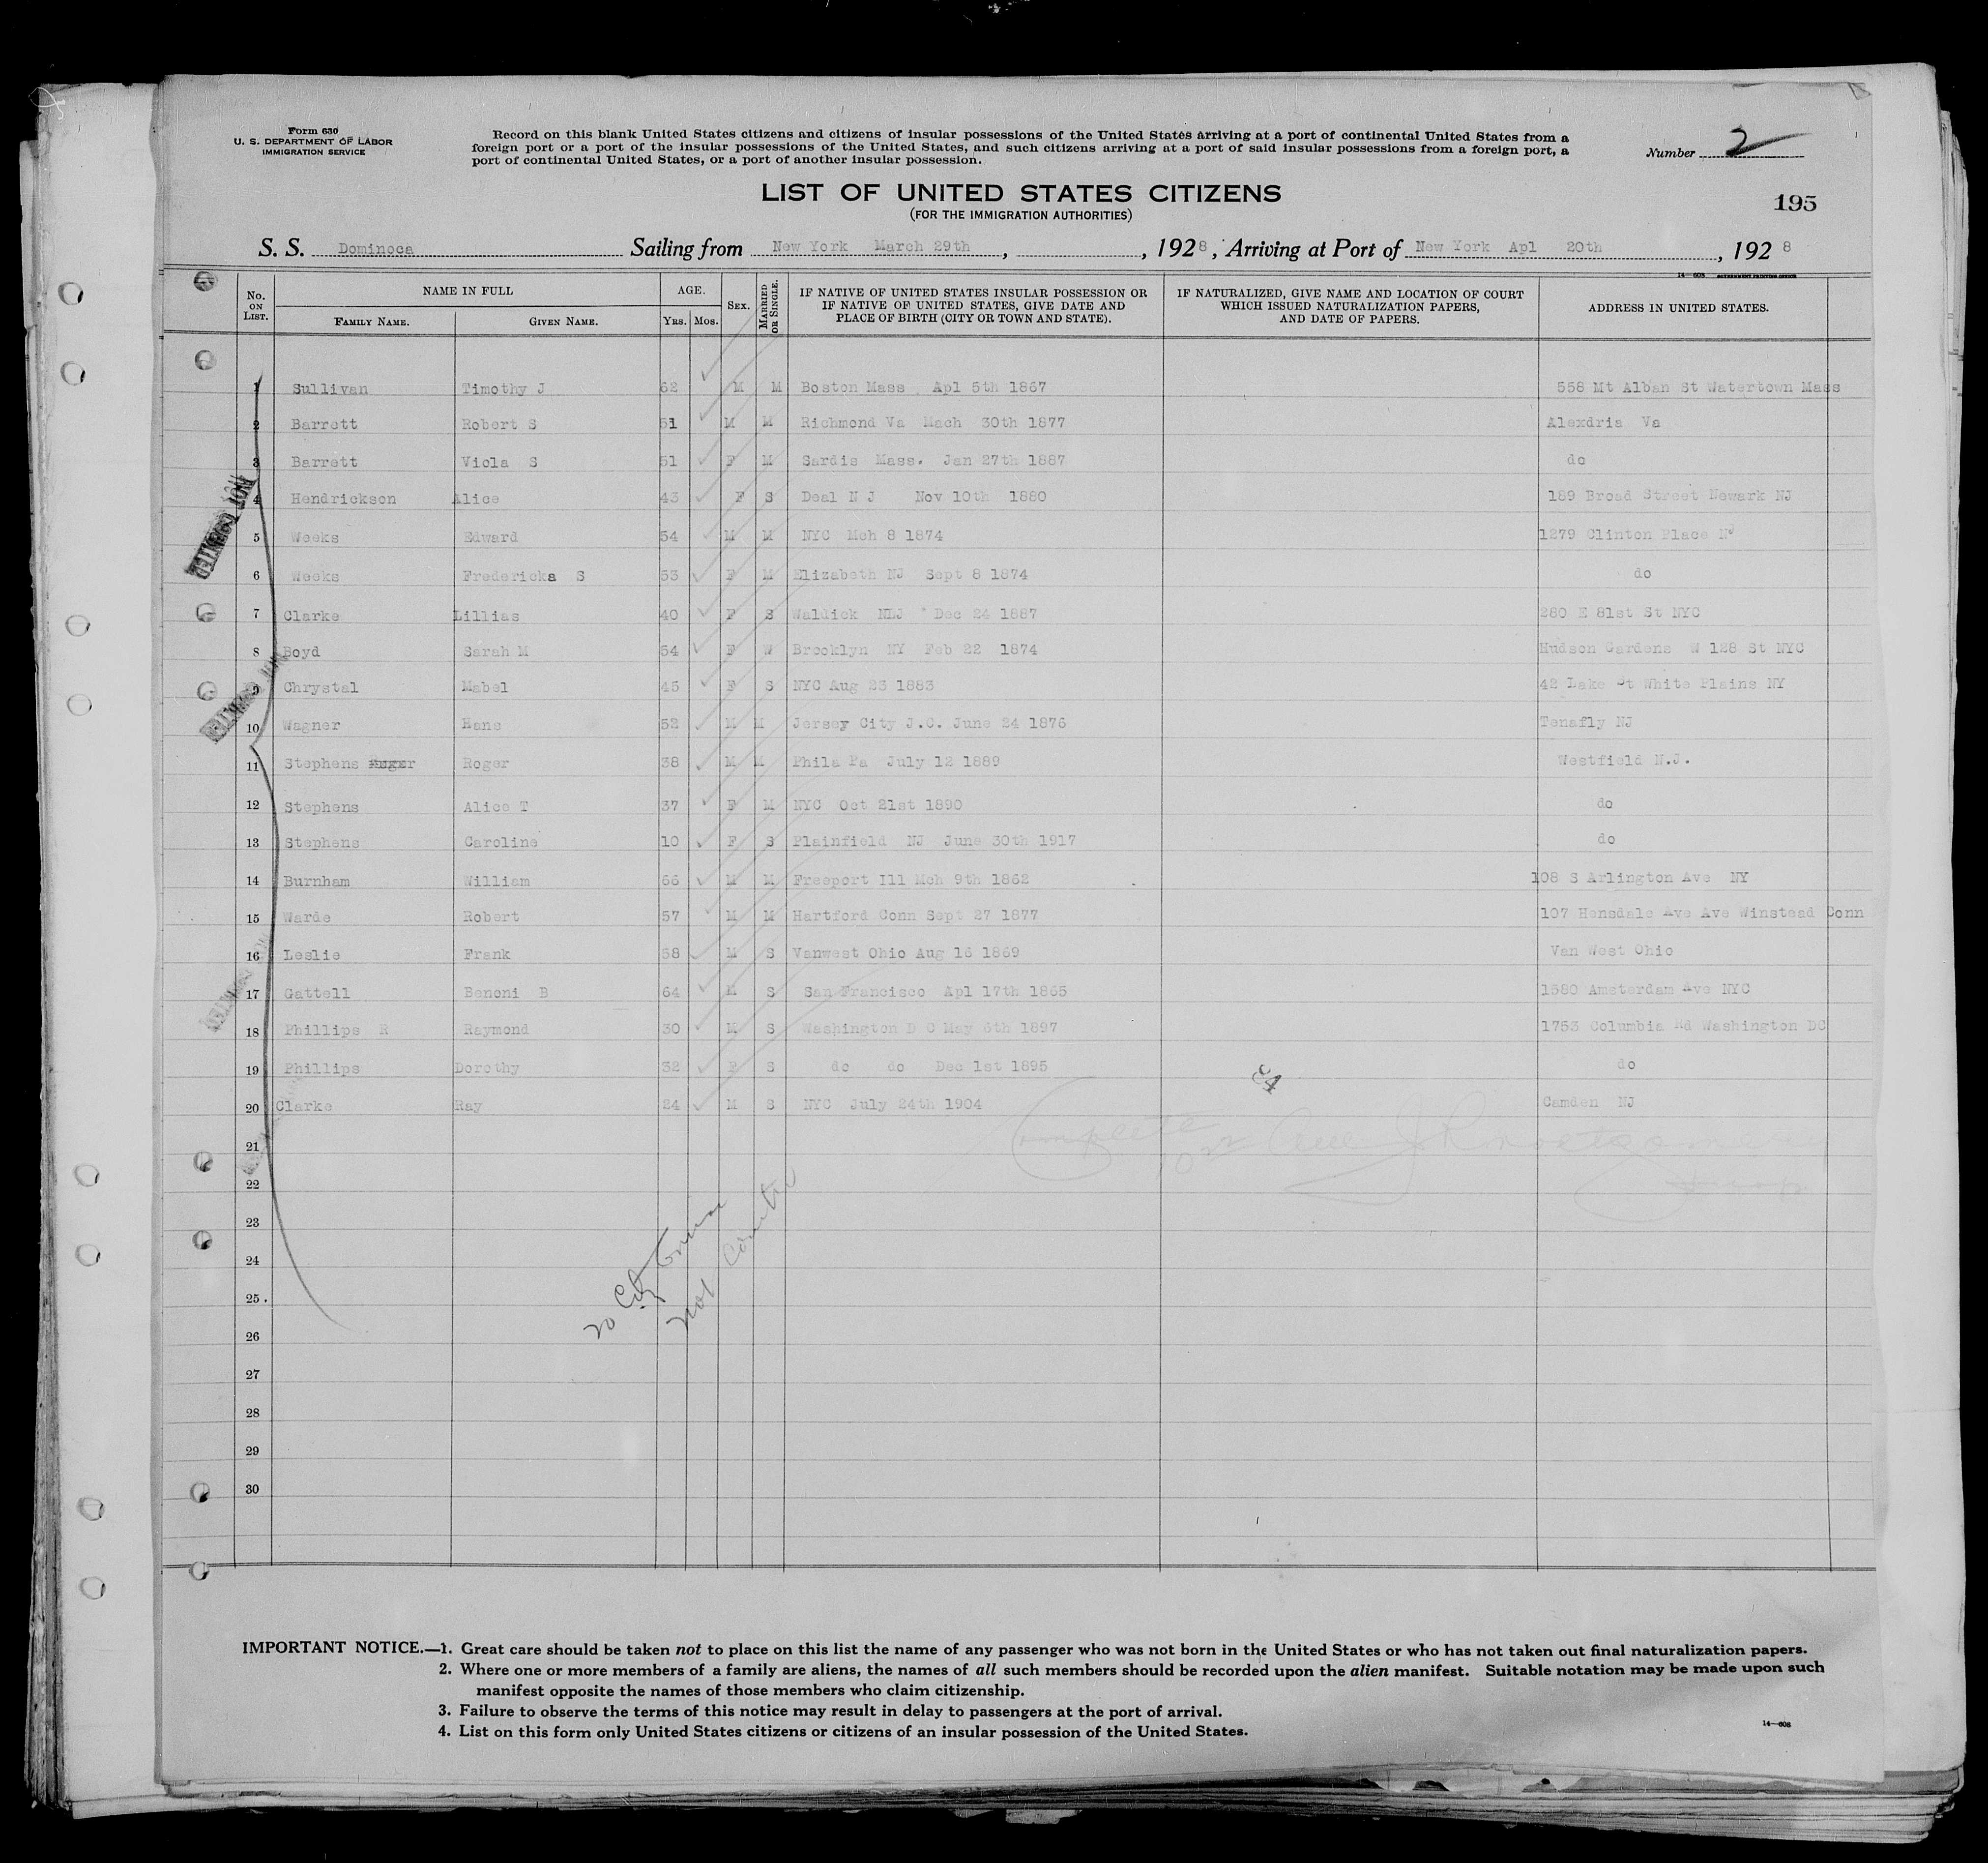 Form 630
U. S. DEPARTMENT OF LABOR
IMMIGRATION SERVICE
Record on this blank United States citizens and citizens of insular possessions of the United States arriving at a port of continental United States from a
foreign port or a port of the insular possessions of the United States, and such citizens arriving at a port of said insular possessions from a foreign port, a
port of continental United States, or a port of another insular possession.
Number 2
LIST OF UNITED STATES CITIZENS
(FOR THE IMMIGRATION AUTHORITIES)
195
S. S. Dominoca Sailing from New York March 29th, , 1928, Arriving at Port of New York Apl 20th, 1928
14—608 GOVERNMENT PRINTING OFFICE
No. ON LIST. NAME IN FULL AGE. SEX. MARRIED OR SINGLE. IF NATIVE OF UNITED STATES INSULAR POSSESSION OR IF NATIVE OF UNITED STATES, GIVE DATE AND PLACE OF BIRTH (CITY OR TOWN AND STATE). IF NATURALIZED, GIVE NAME AND LOCATION OF COURT WHICH ISSUED NATURALIZATION PAPERS, AND DATE OF PAPERS. ADDRESS IN UNITED STATES.
FAMILY NAME. GIVEN NAME. YRS. MOS.
1 Sullivan Timothy J 62 M M Boston Mass Apl 5th 1867 558 Mt Alban St Watertown Mass
2 Barrett Robert S 51 M M Richmond Va Mach 30th 1877 Alexdria Va
3 Barrett Viola S 51 F M Sardis Mass. Jan 27th 1887 do
4 Hendrickson Alice 43 F S Deal N J Nov 10th 1880 189 Broad Street Newark NJ
5 Weeks Edward 54 M M NYC Mch 8 1874 1279 Clinton Place NJ
6 Weeks Fredericka S 53 F M Elizabeth NJ Sept 8 1874 do
7 Clarke Lillias 40 F S Waldick NLJ Dec 24 1887 280 E 81st St NYC
8 Boyd Sarah M 54 F W Brooklyn NY Feb 22 1874 Hudson Gardens W 128 St NYC
9 Chrystal Mabel 45 F S NYC Aug 23 1883 42 Lake St White Plains NY
10 Wagner Hans 52 M M Jersey City J.C. June 24 1876 Tenafly NJ
11 Stephens Roger 38 M M Phila Pa July 12 1889 Westfield N.J.
12 Stephens Alice T 37 F M NYC Oct 21st 1890 do
13 Stephens Caroline 10 F S Plainfield NJ June 30th 1917 do
14 Burnham William 66 M M Freeport Ill Mch 9th 1862 108 S Arlington Ave NY
15 Warde Robert 57 M M Hartford Conn Sept 27 1877 107 Hensdale Ave Ave Winstead Conn
16 Leslie Frank 58 M S Vanwest Ohio Aug 16 1869 Van West Ohio
17 Gattell Benoni B 64 M S San Francisco Apl 17th 1865 1580 Amsterdam Ave NYC
18 Phillips R Raymond 30 M S Washington D C May 6th 1897 1753 Columbia Rd Washington DC
19 Phillips Dorothy 32 F S do do Dec 1st 1895 do
20 Clarke Ray 24 M S NYC July 24th 1904 Camden NJ
21
22
23
24
25.
26
27
28
29
30
NOT COUNTED
Complete
20 Cit
not
IMPORTANT NOTICE.—1. Great care should be taken not to place on this list the name of any passenger who was not born in the United States or who has not taken out final naturalization papers.
2. Where one or more members of a family are aliens, the names of all such members should be recorded upon the alien manifest. Suitable notation may be made upon such
manifest opposite the names of those members who claim citizenship.
3. Failure to observe the terms of this notice may result in delay to passengers at the port of arrival.
4. List on this form only United States citizens or citizens of an insular possession of the United States.
14—608